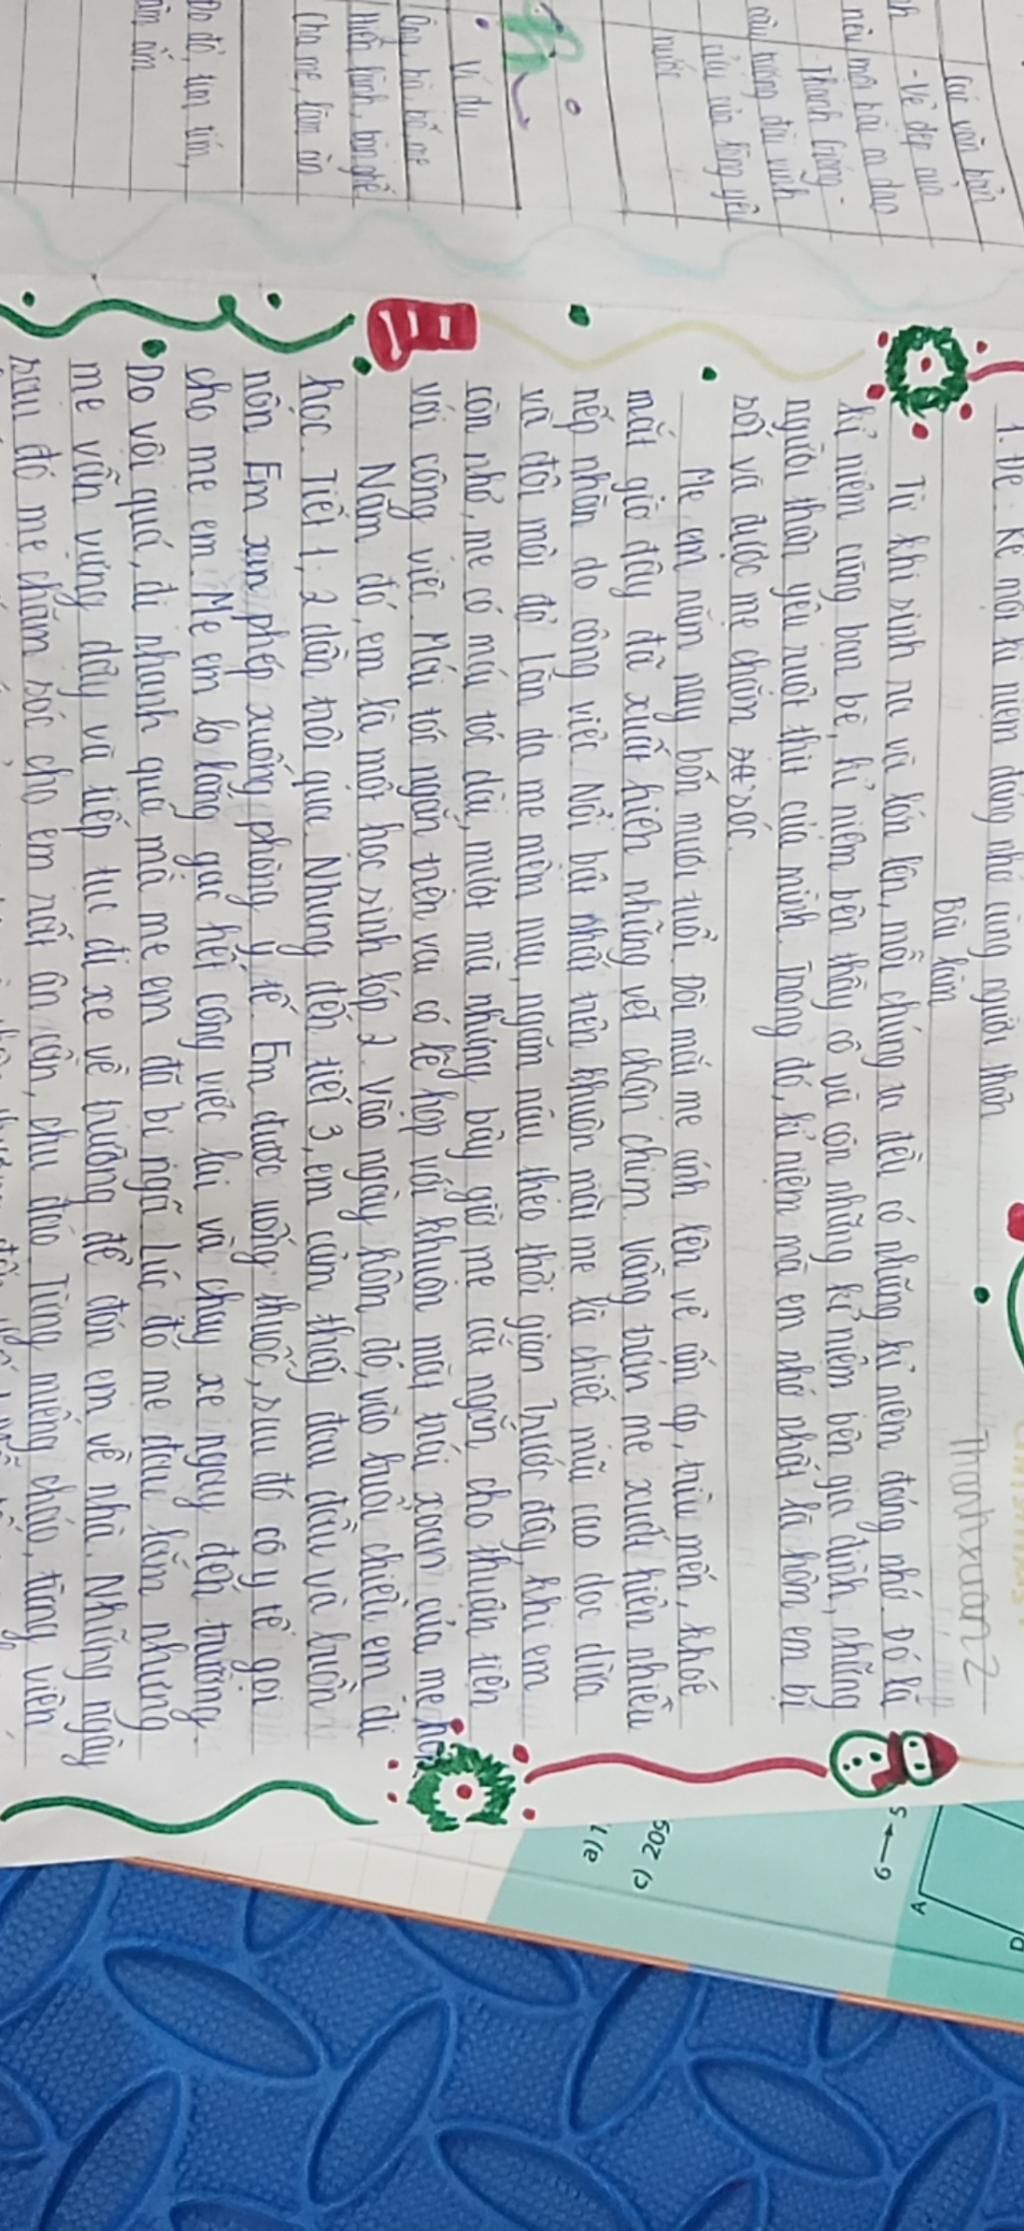 1. Đề: Kể một kỉ niệm đáng nhớ cùng người thân
Bài làm
Thanhxuan2
Từ khi sinh ra và lớn lên, mỗi chúng ta đều có những kỉ niệm đáng nhớ. Đó là
kỉ niệm cùng bạn bè, kỉ niệm bên thầy cô và còn những kỉ niệm bên gia đình, những
người thân yêu ruột thịt của mình. Trong đó, kỉ niệm mà em nhớ nhất là hôm em bị
sốt và được mẹ chăm sóc.
Mẹ em năm nay bốn mươi tuổi. Đôi mắt mẹ ánh lên vẻ ấm áp, trìu mến, khoé
mắt giờ đây đã xuất hiện những vết chân chim. Vầng trán mẹ xuất hiện nhiều
nếp nhăn do công việc. Nổi bật nhất trên khuôn mặt mẹ là chiếc mũi cao dọc dừa
và đôi môi đỏ. Làn da mẹ mềm mại, ngăm nâu theo thời gian. Trước đây, khi em
còn nhỏ, mẹ có mái tóc dài, mượt mà nhưng bây giờ mẹ cắt ngắn cho thuận tiện
với công việc. Mái tóc ngắn trên vai có lẽ hợp với khuôn mặt trái xoan của mẹ hơn
Năm đó, em là một học sinh lớp 2. Vào ngày hôm đó, vào buổi chiều em đi
học. Tiết 1, 2 dần trôi qua. Nhưng đến tiết 3, em cảm thấy đau đầu và buồn
nôn. Em xin phép xuống phòng y tế. Em được uống thuốc, sau đó cô y tế gọi
cho mẹ em. Mẹ em lo lắng gác hết công việc lại và chạy xe ngay đến trường.
Do vội quá, đi nhanh quá mà mẹ em đã bị ngã. Lúc đó mẹ đau lắm nhưng
mẹ vẫn vững dậy và tiếp tục đi xe về trường để đón em về nhà. Những ngày
sau đó mẹ chăm sóc cho em rất ân cần, chu đáo. Từng miếng cháo, từng viên
các văn bản
- Vẻ đẹp của
nêu một bài ca dao
- Thánh Gióng -
nước
Ví dụ
Ông, bà, bố mẹ
Cha mẹ, làm ăn
a) 1
c) 209
6 → 5
A
D